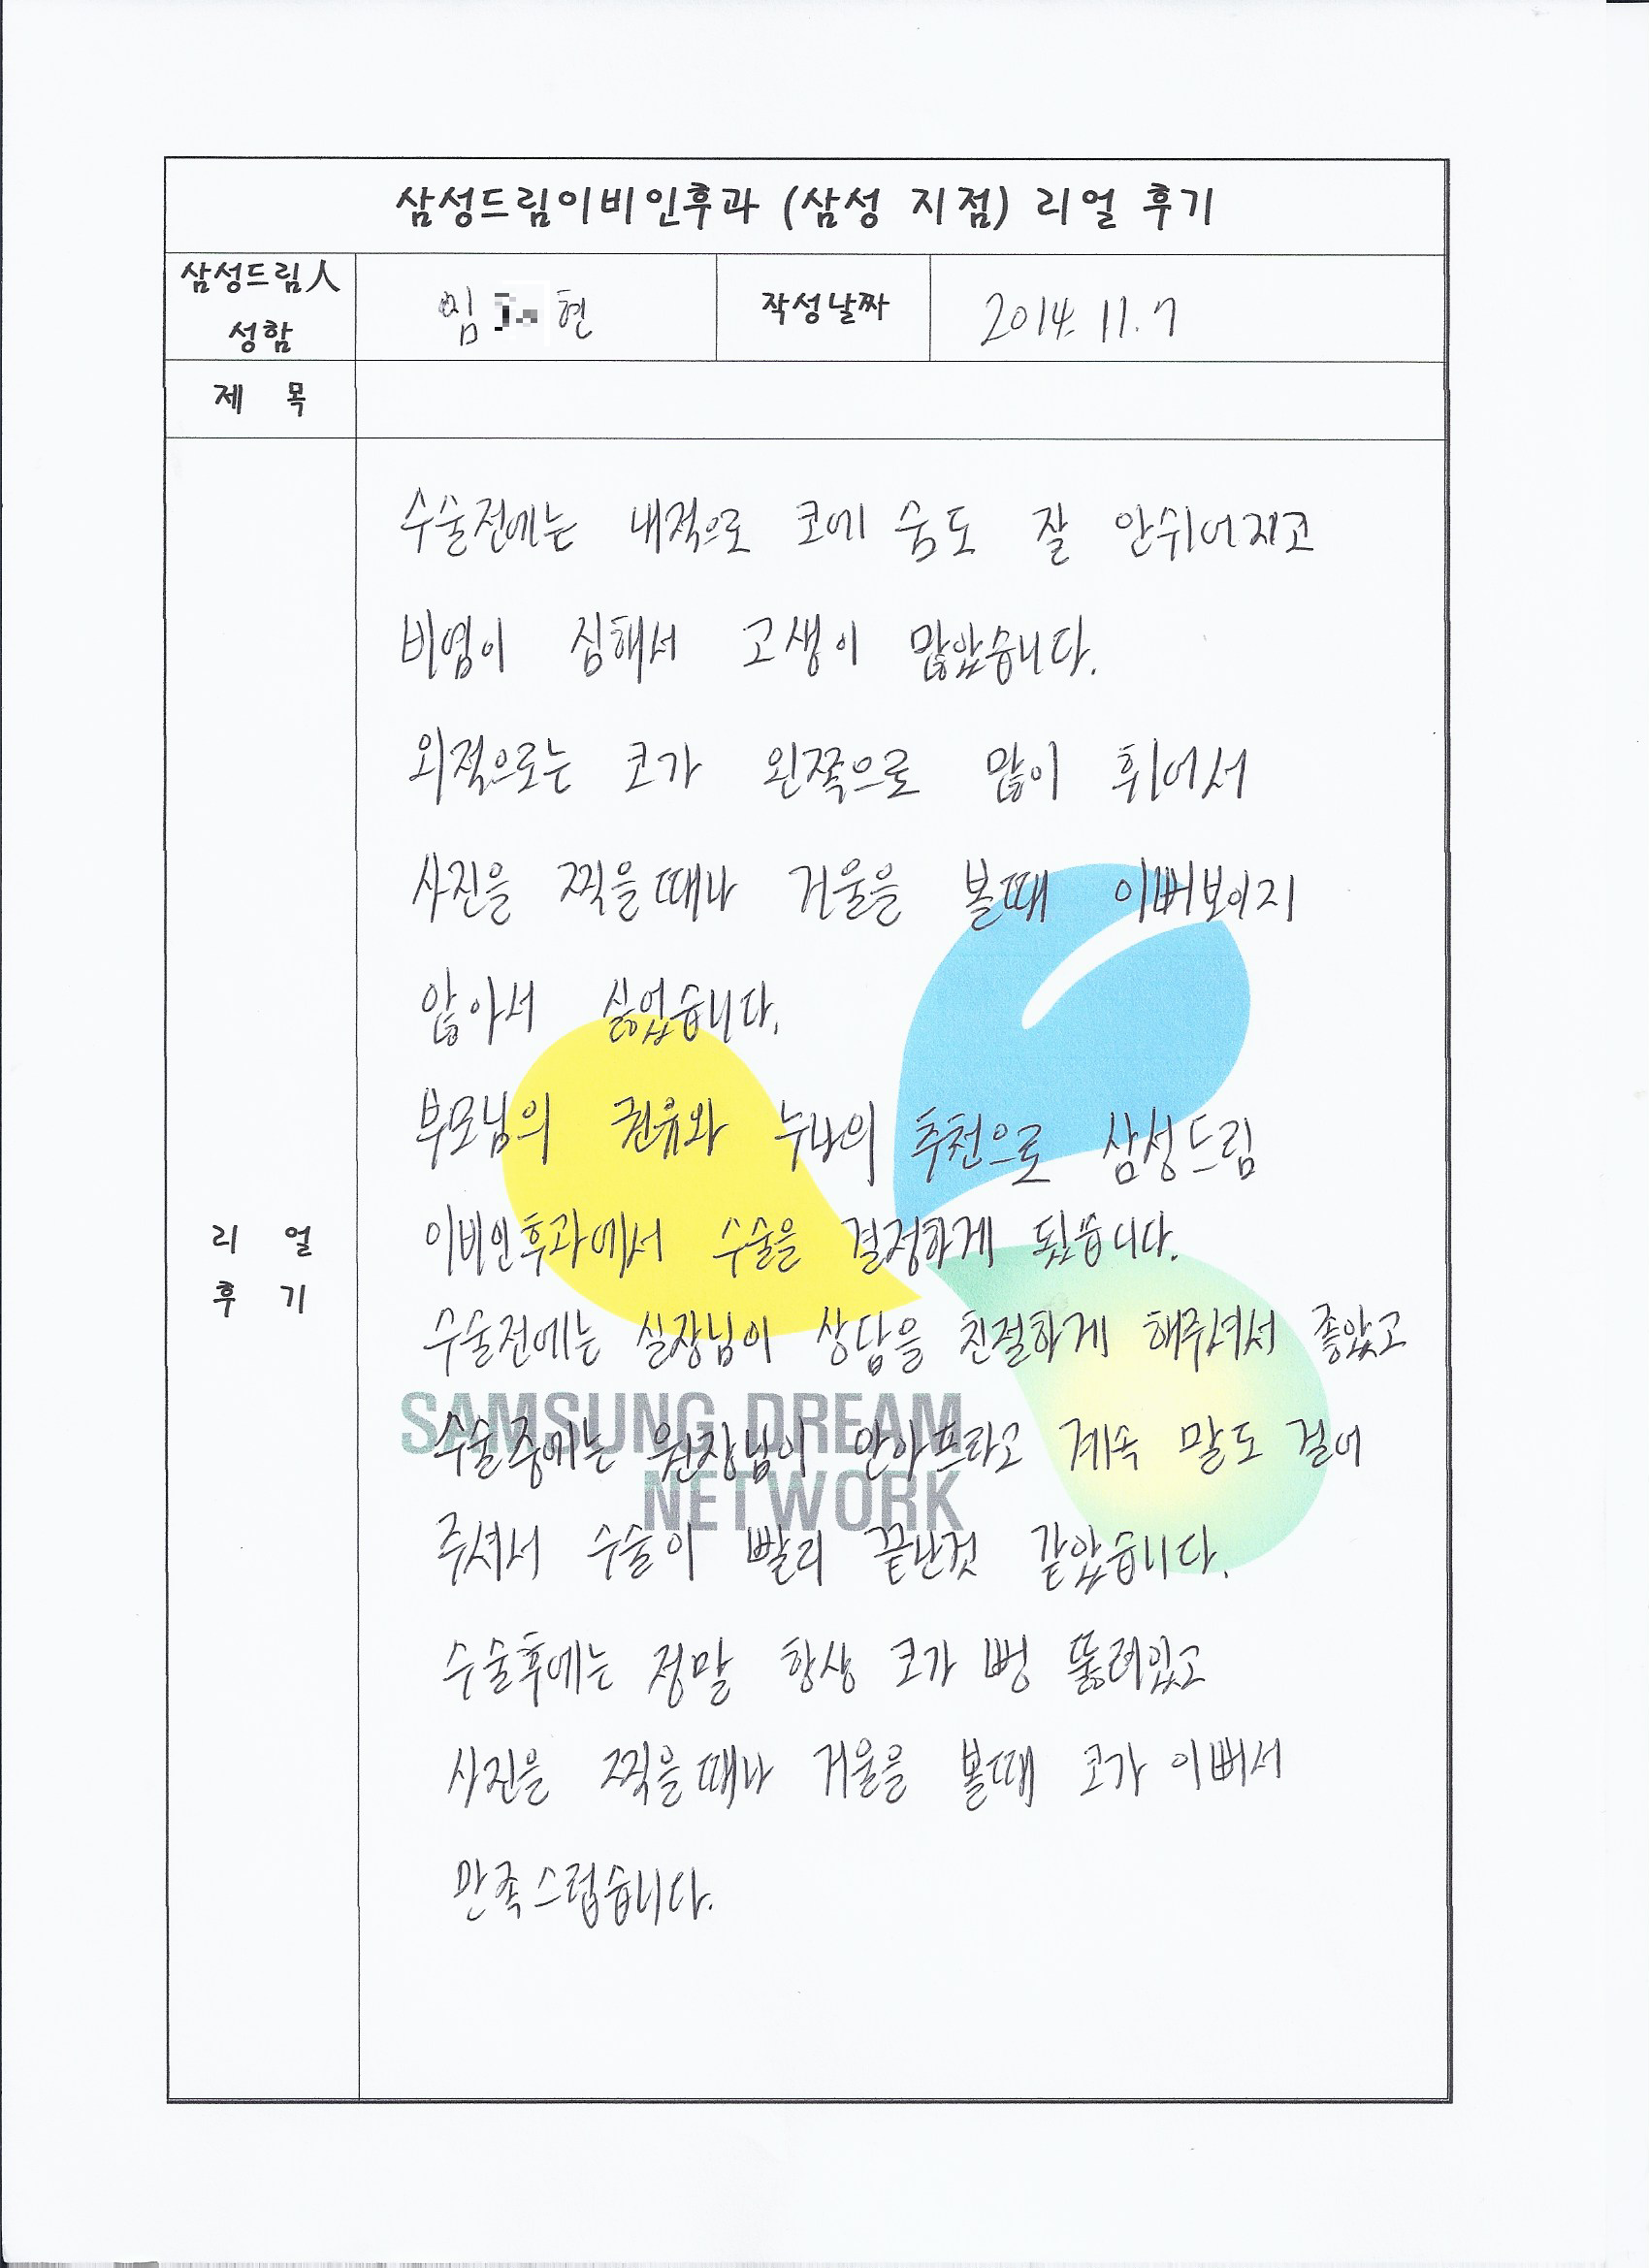 삼성드림이비인후과 (삼성 지점) 리얼 후기
삼성드림人
성함
임 현
작성날짜
2014. 11. 7
제 목
수술전에는 내적으로 코에 숨도 잘 안쉬어지고
비염이 심해서 고생이 많았습니다.
외적으로는 코가 왼쪽으로 많이 휘어서
사진을 찍을때나 거울을 볼때 이뻐보이지
않아서 싫었습니다.
부모님의 권유와 누나의 추천으로 삼성드림
이비인후과에서 수술을 결정하게 됬습니다.
수술전에는 실장님이 상담을 친절하게 해주셔서 좋았고
수술중에는 원장님이 안아프라고 계속 말도 걸어
주셔서 수술이 빨리 끝난것 같았습니다.
수술후에는 정말 항상 코가 뻥 뚫려있고
사진을 찍을때나 거울을 볼때 코가 이뻐서
만족스럽습니다.
리 얼
후 기
SAMSUNG DREAM
NETWORK